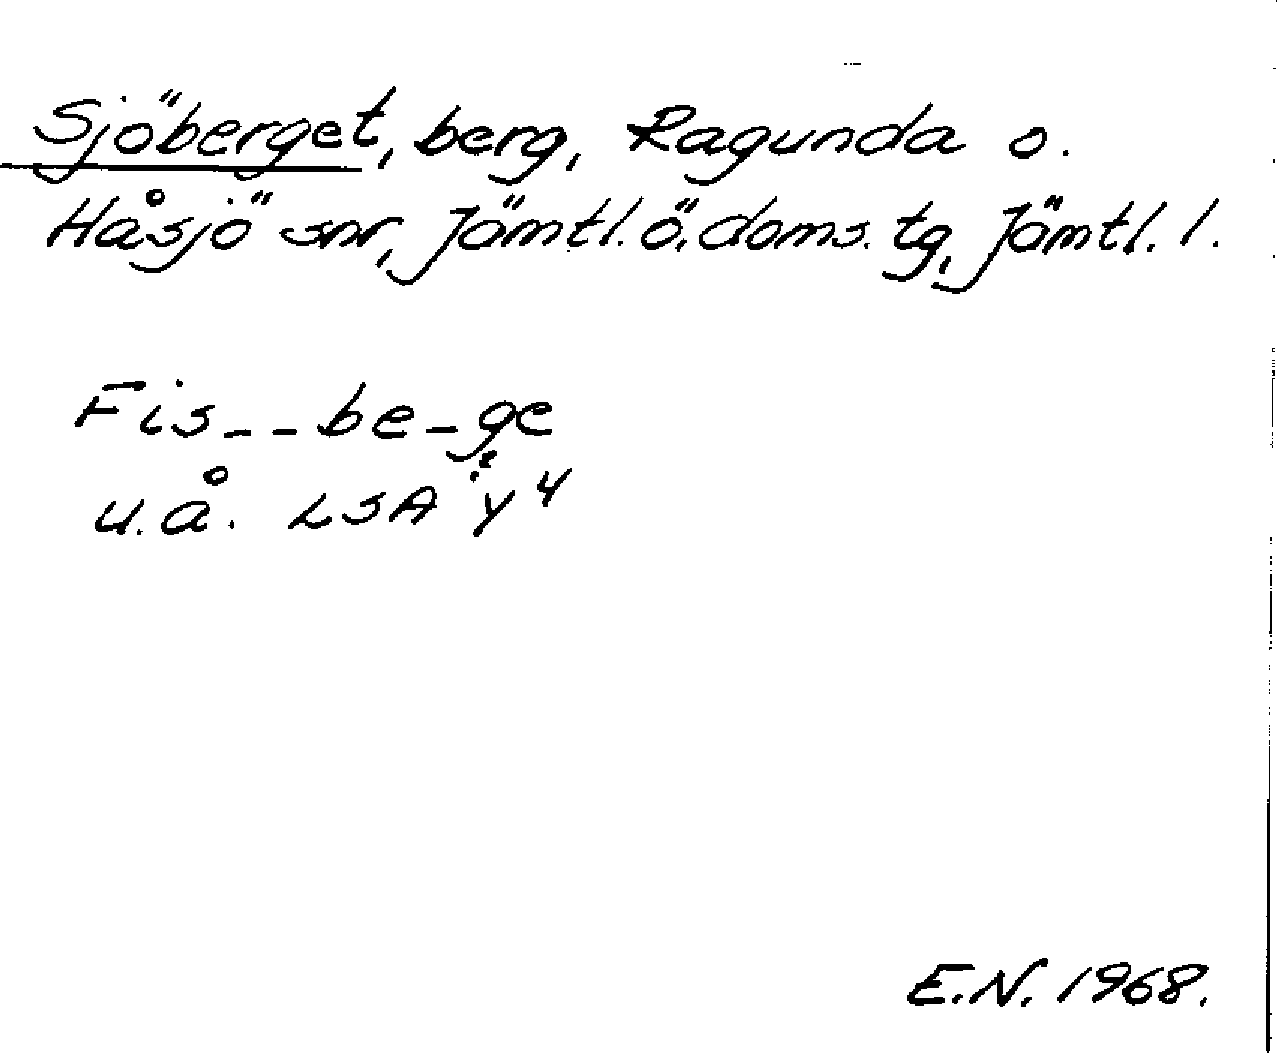 Sjöberget, berg, Ragunda o.
Håsjö snr, Jämtl. ö. doms. tg, Jämtl. l.
Fis_ _ be_ge
u.å. LSA Y 4
E.N. 1968.